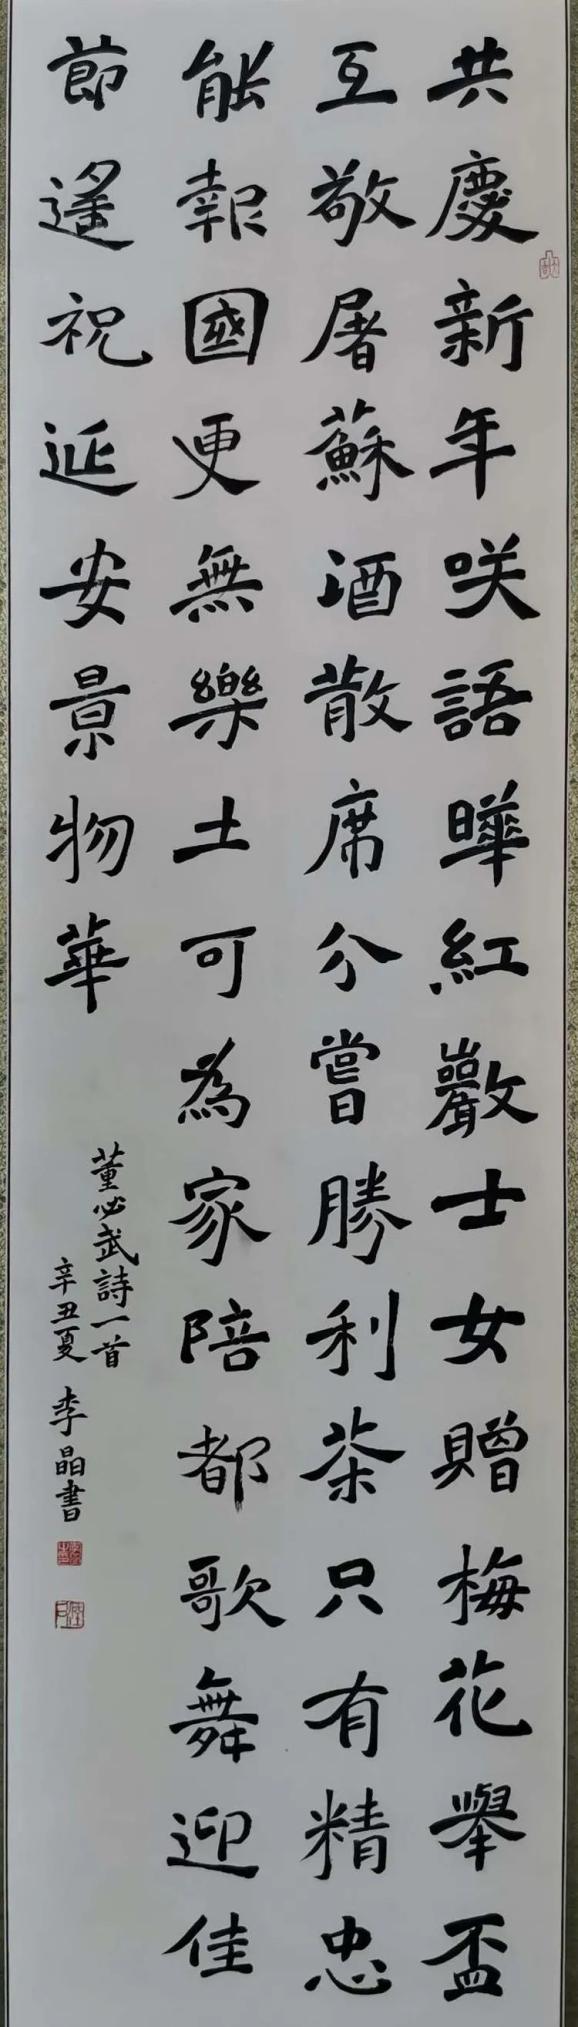 共慶新年咲語曄紅巖士女贈梅花舉盃
互敬屠蘇酒散席分嘗勝利茶只有精忠
能報國更無樂土可為家陪都歌舞迎佳
節遙祝延安景物華
董必武詩一首
辛丑夏 李晶書